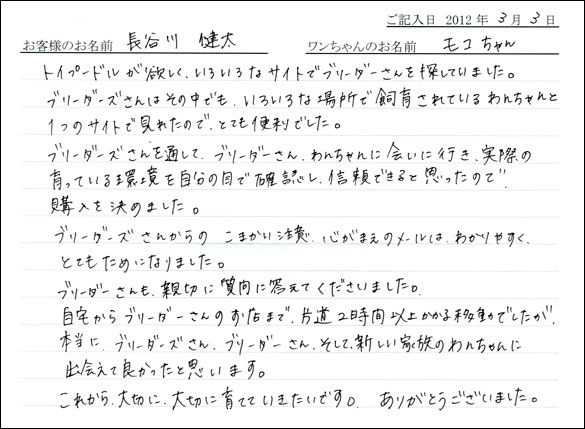 ご記入日 2012年 3月 3日
お客様のお名前 長谷川 健太 ワンちゃんのお名前 モコちゃん
トイプードルが欲しく、いろいろなサイトでブリーダーさんを探していました。
ブリーダーズさんはその中でも、いろいろな場所で飼育されているわんちゃんと
1つのサイトで見れたので、とても便利でした。
ブリーダーズさんを通して、ブリーダーさん、わんちゃんに会いに行き、実際の
育っている環境を自分の目で確認し、信頼できると思ったので
購入を決めました。
ブリーダーズさんからの こまかい注意、心がまえのメールは、わかりやすく、
とてもためになりました。
ブリーダーさんも、親切に質問に答えてくださいました。
自宅からブリーダーさんのお店まで、片道2時間以上かかる移動でしたが、
本当に、ブリーダーズさん、ブリーダーさん、そして、新しい家族のわんちゃんに
出会えて良かったと思います。
これから、大切に、大切に育てていきたいです。 ありがとうございました。